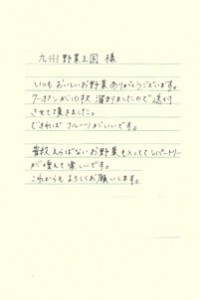 九州野菜王国 様
いつもおいしいお野菜ありがとうございます。
クーポンが10枚 溜まりましたので送付
させて頂きました。
できれば フルーツがいいです。
普段えらばないお野菜も入っててレパートリー
が増えて嬉しいです。
これからもよろしくお願いします。